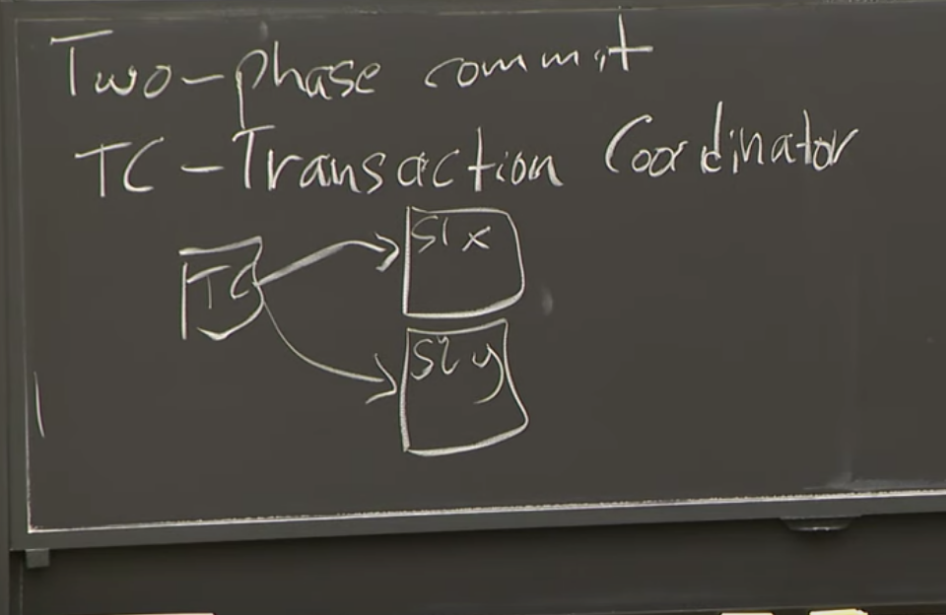 Two-phase commit
TC-Transaction Coordinator
TC
S1 x
S2 y